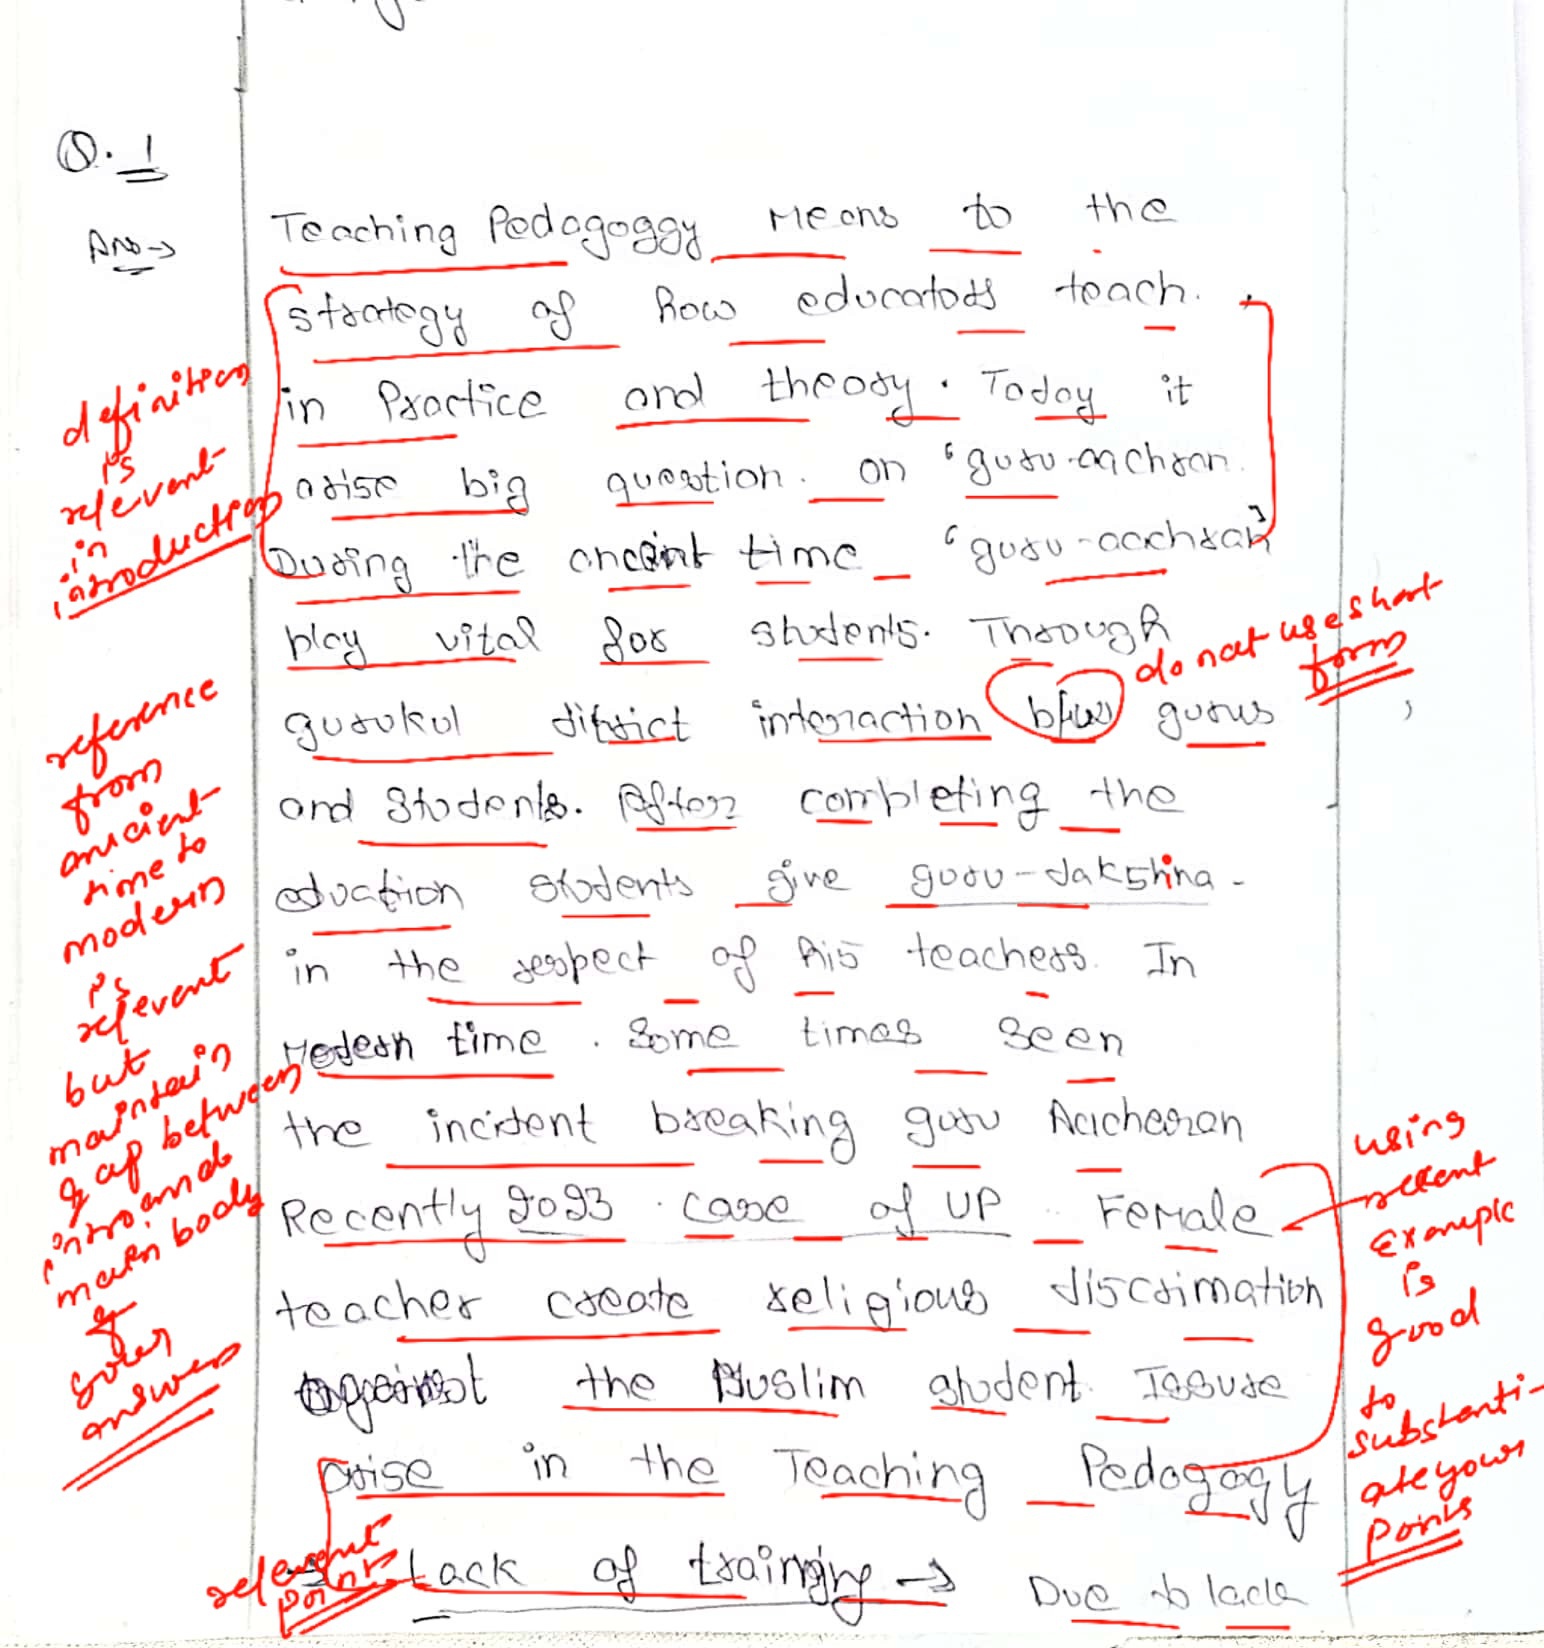 Q. 1
Ans→
Teaching Pedagoggy Means to the
strategy of how educators teach.
in Practice and theory. Today it
arise big question. on 'guru-aachran.
During the ancaint time 'guru-aachran'
play vital for students. Through
gurukul district interaction b/w gurus
and Students. After completing the
education students give guru-dakshina-
in the respect of his teachers. In
Modern time. Some times seen
the incident breaking guru Aacheran
Recently 2023. case of UP Female
teacher create religious discrimation
against the Muslim student. Issuse
arise in the Teaching Pedagogy
→ Lack of training → Due to lack
definition
is
relevant
in
introduction
do not use short
form
reference
from
ancient
time to
modern
is
relevant
but
maintain
gap between
intro and
main body
of
your
answer
using
recent
Example
is
good
to
substanti-
ate your
Points
relevant
points